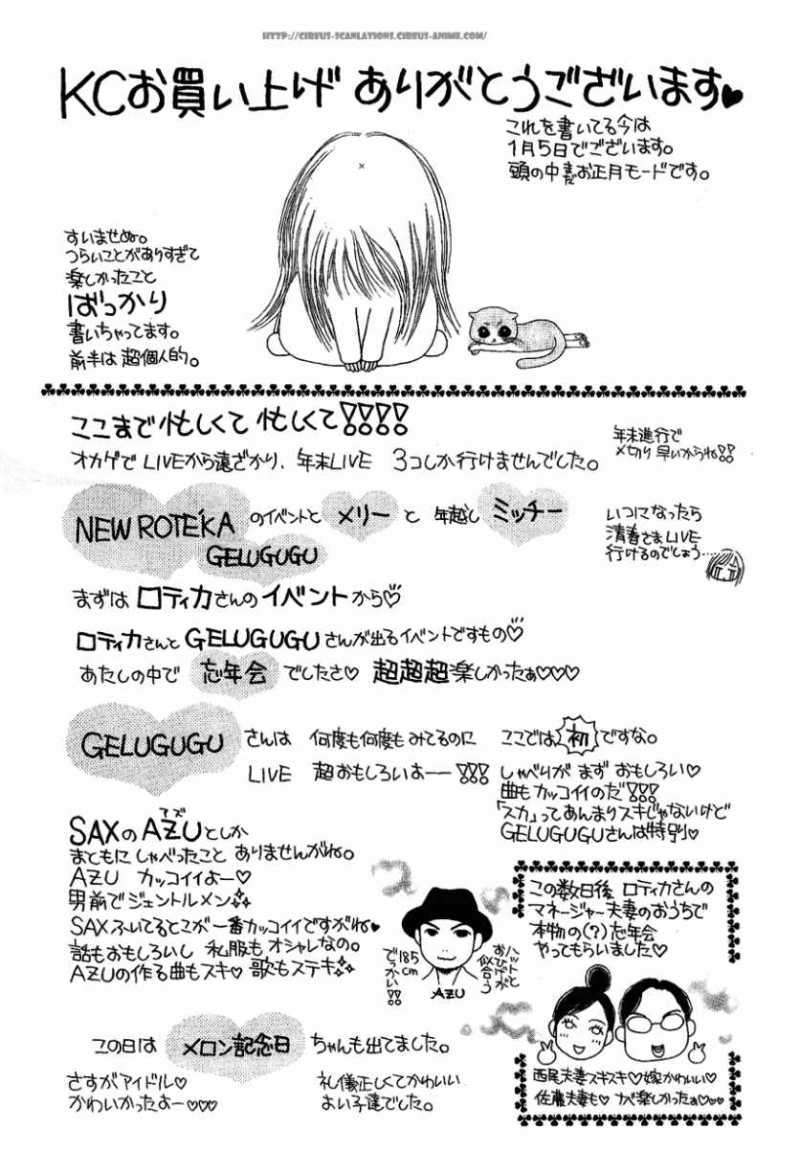 HTTP://CIRRUS-SCANLATIONS.CIRRUS-ANIME.COM/
KCお買い上げ ありがとうございます♥
これを書いてる今は
1月5日でございます。
頭の中まだお正月モードです。
すいませぬ。
つらいことがありすぎて
楽しかったこと
ばっかり
書いちゃってます。
前半は 超個人的。
ここまで 忙しくて 忙しくて!!!!
オカゲで LIVEから遠ざかり、年末LIVE 3コしか行けませんでした。
年末進行で
〆切り 早いからね!!
NEW ROTE'KA のイベントと メリー と 年越し ミッチー
GELUGUGU
いつになったら
清春さまLIVE
行けるのでしょう……
まずは ロティカさんの イベント から♡
ロティカさんと GELUGUGU さんが出るイベントですもの♡
あたしの中で 忘年会 でしたさ♡ 超超超楽しかったぁ♡♡♡
GELUGUGU さんは 何度も何度も みてるのに ここでは 初 ですな。
LIVE 超おもしろいよー!!!
しゃべりが まず おもしろい♡
曲も カッコイイのだ!!!
「スカ」ってあんまりスキじゃないけど
GELUGUGUさんは特別♡
SAXの AZU としか
アズ
まともに しゃべったこと ありませんがね。
AZU カッコイイよー♡
男前で ジェントルメン
SAXふいてるとこが 一番カッコイイですがね♥
話もおもしろいし 私服も オシャレなの。
AZUの作る曲もスキ♡ 歌もステキ
ハットと
おひげが
似合う
185cm
でっかい!!
AZU
この数日後 ロティカさんの
マネージャー夫妻のおうちで
本物の(?)忘年会
やってもらいました♡
西尾夫妻スキスキ♡嫁かわいい♡
佐藤夫妻も♡ ナベ楽しかったぁ♡♡♡
この日は メロン記念日 ちゃんも出てました。
さすがアイドル♡
かわいかったよー♡♡♡
礼儀正しくてかわいい
よい子達でした。